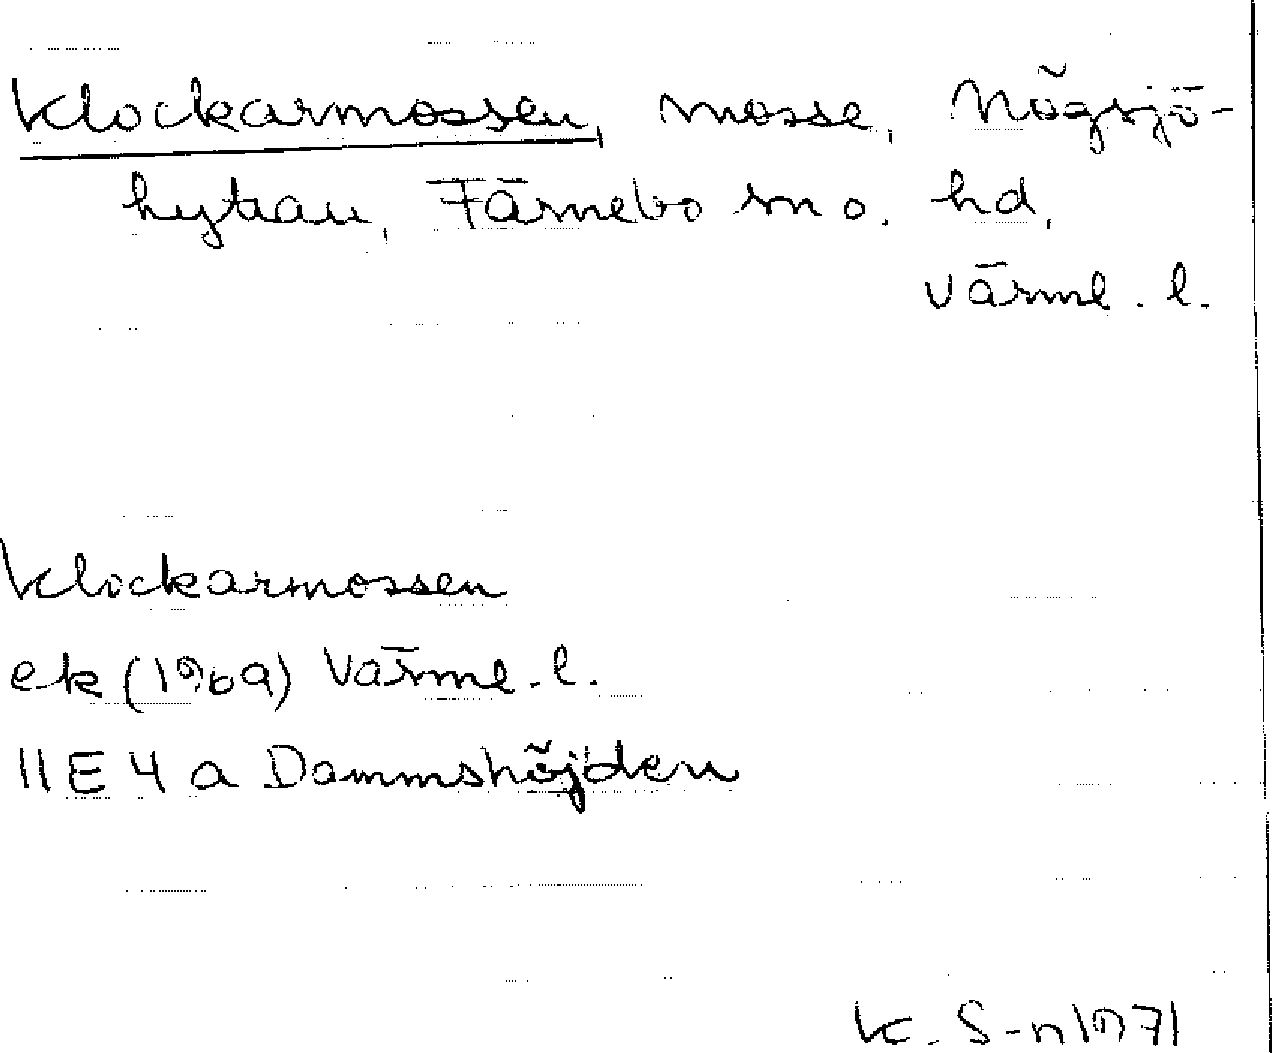 Klockarmossen, mosse, Högsjö-
hyttan, Färnebo sn o. hd,
Värml. l.
Klockarmossen
ek (1969) Värml. l.
11 E 4 a Dammshöjden
K. S-n 1971